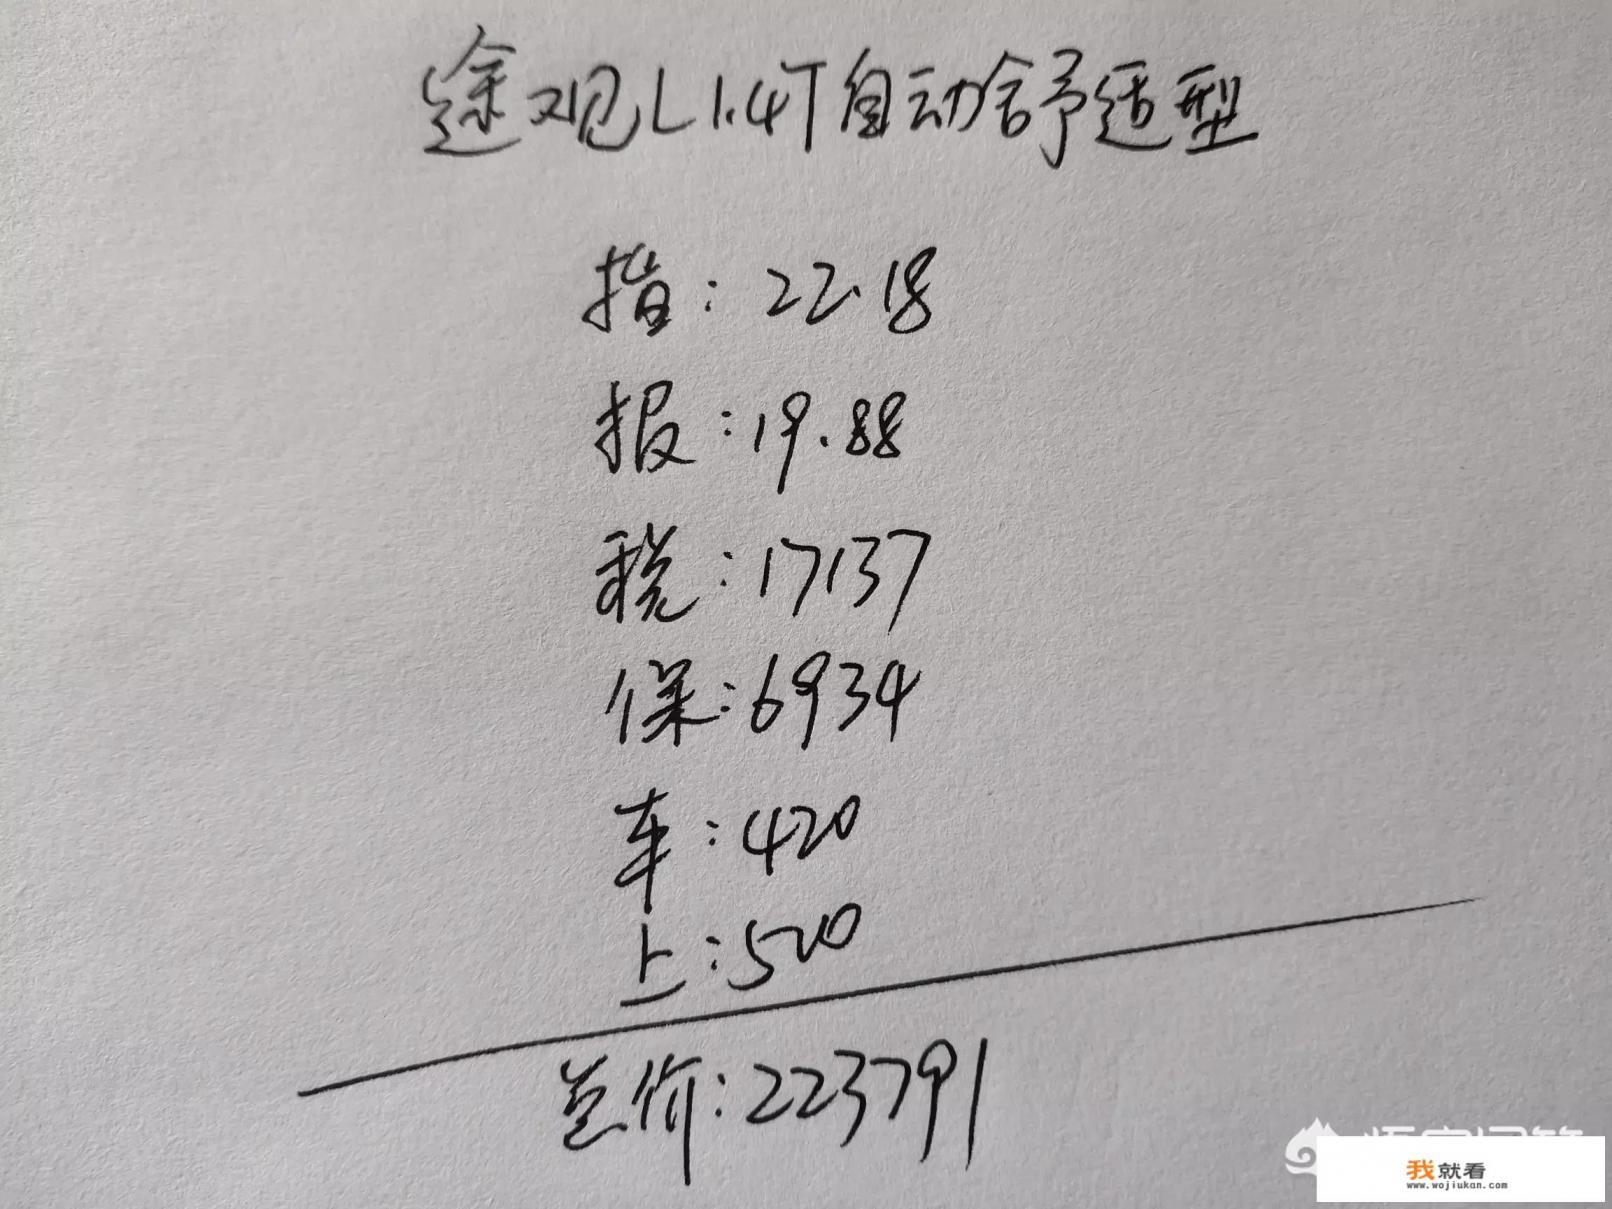 途观L 1.4T自动舒适型
指:22.18
报:19.88
税:17137
保:6934
车:420
上:500
总价:223791
悟空问答
我就看
www.wojiukan.com